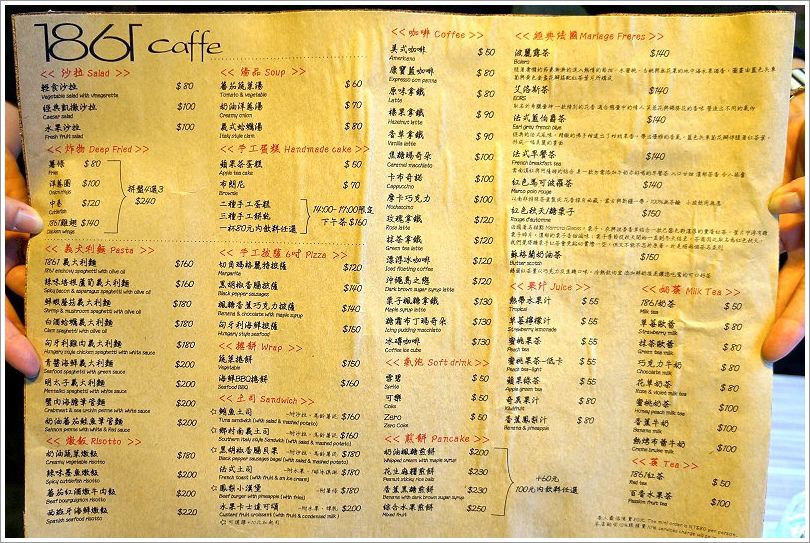 1861 caffe
<< 沙拉 Salad >>
輕食沙拉 $80
Vegetable salad with vinaigrette
經典凱撒沙拉 $100
Caesar salad
水果沙拉 $100
Fresh fruit salad
<< 炸物 Deep Fried >>
薯條 $80
Fries
洋蔥圈 $100
Onion rings
中卷 $120
Calamari
1861雞翅 $140
Chicken wings
拼盤4選3
$240
<< 義大利麵 Pasta >>
1861義大利麵 $160
1861 anchovy spaghetti with olive oil
辣味培根蘆筍義大利麵 $160
Spicy bacon & asparagus spaghetti with olive oil
鮮蝦蘑菇義大利麵 $180
Shrimp & mushroom spaghetti with olive oil
白酒蛤蠣義大利麵 $180
Clam spaghetti with olive oil
匈牙利雞肉義大利麵 $180
Hungary style chicken spaghetti with white sauce
青醬海鮮義大利麵 $200
Seafood spaghetti with green sauce
明太子義大利麵 $200
Mentaiko spaghetti with white sauce
蟹肉海膽筆管麵 $200
Crabmeat & sea urchin penne with white sauce
奶油蕃茄鮭魚筆管麵 $200
Salmon penne with white & Red sauce
<< 燉飯 Risotto >>
奶油蔬菜燉飯 $180
Creamy vegetable risotto
辣味墨魚燉飯 $200
Spicy cuttlefish risotto
蕃茄紅酒燉牛肉飯 $200
Beef bourguignon risotto
西班牙海鮮燉飯 $220
Spanish seafood risotto
<< 湯品 Soup >>
蕃茄蔬菜湯 $60
Tomato & vegetable
奶油洋蔥湯 $80
Creamy onion
義式蛤蠣湯 $80
Italy style clam
<< 手工蛋糕 Handmade cake >>
蘋果茶蛋糕 $50
Apple tea cake
布朗尼 $70
Brownie
二種手工蛋糕
三種手工餅乾
一杯80元內飲料任選
14:00-17:00限定
下午茶 $160
<< 手工披薩 6吋 Pizza >>
切角瑪格麗特披薩 $120
Margarita
黑胡椒香腸披薩 $140
Black pepper sausages
楓糖香蕉巧克力披薩 $140
Banana & chocolate with maple syrup
匈牙利海鮮披薩 $150
Hungary style seafood
<< 捲餅 Wrap >>
蔬菜捲餅 $150
Vegetable
海鮮BBQ捲餅 $160
Seafood BBQ
<< 土司 Sandwich >>
鮪魚土司 -附沙拉、馬鈴薯泥 $160
Tuna sandwich (with salad & mashed potato)
鄉村南義土司 -附沙拉、馬鈴薯泥 $160
Southern Italy style Sandwich (with salad & mashed potato)
黑胡椒香腸貝果 -附沙拉、馬鈴薯泥 $160
Black pepper sausages bagel (with salad & mashed potato)
法式土司
French toast (with fruit & an ice cream)
鳳梨小漢堡
Beef burger with pineapple (with fries)
水果卡士達可頌
Custard fruit croissant (with fruit & condensed milk)
<< 咖啡 Coffee >>
美式咖啡 $50
Americano
康寶藍咖啡 $80
Espresso con panna
原味拿鐵 $80
Latte
榛果拿鐵 $90
Hazelnut latte
香草拿鐵 $90
Vanilla latte
焦糖瑪奇朵 $100
Caramel macchiato
卡布奇諾 $100
Cappuccino
摩卡巧克力 $100
Mochaccino
玫瑰拿鐵 $100
Rose latte
抹茶拿鐵 $120
Green tea latte
漂浮冰咖啡 $120
Iced floating coffee
沖繩勇之戀 $120
Dark brown sugar syrup latte
栗子楓糖拿鐵 $130
Maple syrup latte
糖霜布丁瑪奇朵 $130
Icing pudding macchiato
冰磚咖啡 $130
Coffee ice cube
<< 氣泡 Soft drink >>
雪碧 $50
Sprite
可樂 $50
Coke
Zero $50
Zero Coke
<< 煎餅 Pancake >>
奶油楓糖煎餅 $200
Whipped cream with maple syrup
花生麻糬煎餅 $230
Peanut sticky rice balls
香蕉黑糖煎餅 $230
Banana with dark brown sugar syrup
綜合水果煎餅 $250
Mixed fruit
+60元
100元內飲料任選
<< 經典法國Mariage Freres >>
波麗露茶 $140
Bolero
艾洛斯茶 $140
EORS
法式藍伯爵茶 $140
Earl grey french blue
法式早餐茶 $140
French breakfast tea
紅色馬可波羅茶 $140
Marco polo rouge
紅色秋天/糖栗子 $150
Rouge d'automne
蘇格蘭奶油茶 $150
Butter scotch
<< 果汁 Juice >>
熱帶水果汁 $55
Tropical
草莓檸檬汁 $55
Strawberry lemonade
蜜桃果茶 $55
Peach tea
蜜桃果茶-低卡 $55
Peach tea-light
蘋果綠茶 $55
Apple green tea
奇異果汁 $80
Kiwifruit
香蕉鳳梨汁 $80
Banana & pineapple
<< 奶茶 Milk Tea >>
1861奶茶 $50
Milk tea
草莓歐蕾 $80
Strawberry milk
抹茶歐蕾 $80
Green tea milk
巧克力牛奶 $80
Chocolate milk
花草奶茶 $80
Rose & violet milk tea
蜜桃奶茶 $100
Honey peach milk tea
香蕉牛奶 $100
Banana milk
熱烤布蕾牛奶 $100
Creme brulee milk
<< 茶 Tea >>
1861紅茶 $50
Red tea
百香水果茶 $100
Passion fruit tea